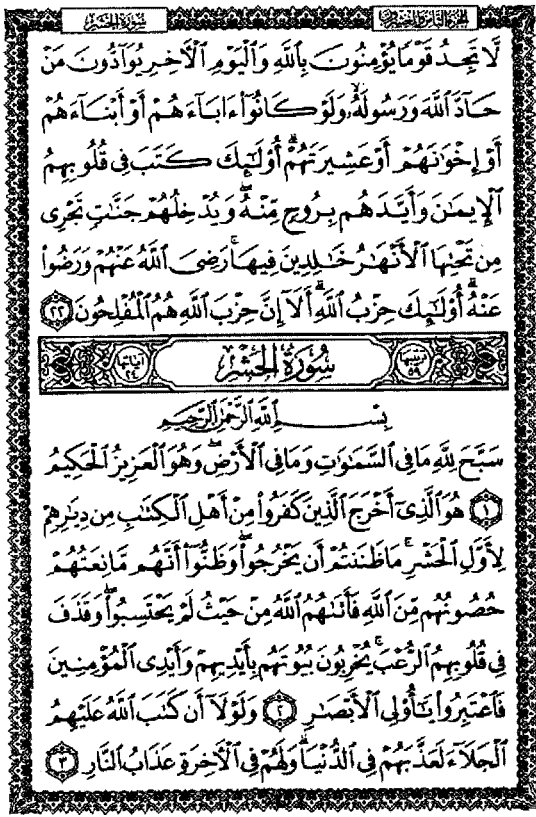 الجزء الثامن والعشرون سُورَةُ الحَشْرِ
لَّا تَجِدُ قَوْمًا يُؤْمِنُونَ بِٱللَّهِ وَٱلْيَوْمِ ٱلْـَٔاخِرِ يُوَآدُّونَ مَنْ
حَآدَّ ٱللَّهَ وَرَسُولَهُۥ وَلَوْ كَانُوٓا۟ ءَابَآءَهُمْ أَوْ أَبْنَآءَهُمْ
أَوْ إِخْوَٰنَهُمْ أَوْ عَشِيرَتَهُمْ ۚ أُو۟لَٰٓئِكَ كَتَبَ فِى قُلُوبِهِمُ
ٱلْإِيمَٰنَ وَأَيَّدَهُم بِرُوحٍ مِّنْهُ ۖ وَيُدْخِلُهُمْ جَنَّٰتٍ تَجْرِى
مِن تَحْتِهَا ٱلْأَنْهَٰرُ خَٰلِدِينَ فِيهَا ۚ رَضِىَ ٱللَّهُ عَنْهُمْ وَرَضُوا۟
عَنْهُ ۚ أُو۟لَٰٓئِكَ حِزْبُ ٱللَّهِ ۚ أَلَآ إِنَّ حِزْبَ ٱللَّهِ هُمُ ٱلْمُفْلِحُونَ ٢٢
ترتيبها ٥٩ سُورَةُ الحَشْرِ آياتها ٢٤
بِسْمِ ٱللَّهِ ٱلرَّحْمَٰنِ ٱلرَّحِيمِ
سَبَّحَ لِلَّهِ مَا فِى ٱلسَّمَٰوَٰتِ وَمَا فِى ٱلْأَرْضِ ۖ وَهُوَ ٱلْعَزِيزُ ٱلْحَكِيمُ
١ هُوَ ٱلَّذِىٓ أَخْرَجَ ٱلَّذِينَ كَفَرُوا۟ مِنْ أَهْلِ ٱلْكِتَٰبِ مِن دِيَٰرِهِمْ
لِأَوَّلِ ٱلْحَشْرِ ۚ مَا ظَنَنتُمْ أَن يَخْرُجُوا۟ ۖ وَظَنُّوٓا۟ أَنَّهُم مَّانِعَتُهُمْ
حُصُونُهُم مِّنَ ٱللَّهِ فَأَتَىٰهُمُ ٱللَّهُ مِنْ حَيْثُ لَمْ يَحْتَسِبُوا۟ ۖ وَقَذَفَ
فِى قُلُوبِهِمُ ٱلرُّعْبَ ۚ يُخْرِبُونَ بُيُوتَهُم بِأَيْدِيهِمْ وَأَيْدِى ٱلْمُؤْمِنِينَ
فَٱعْتَبِرُوا۟ يَٰٓأُو۟لِى ٱلْأَبْصَٰرِ ٢ وَلَوْلَآ أَن كَتَبَ ٱللَّهُ عَلَيْهِمُ
ٱلْجَلَآءَ لَعَذَّبَهُمْ فِى ٱلدُّنْيَا ۖ وَلَهُمْ فِى ٱلْـَٔاخِرَةِ عَذَابُ ٱلنَّارِ ٣